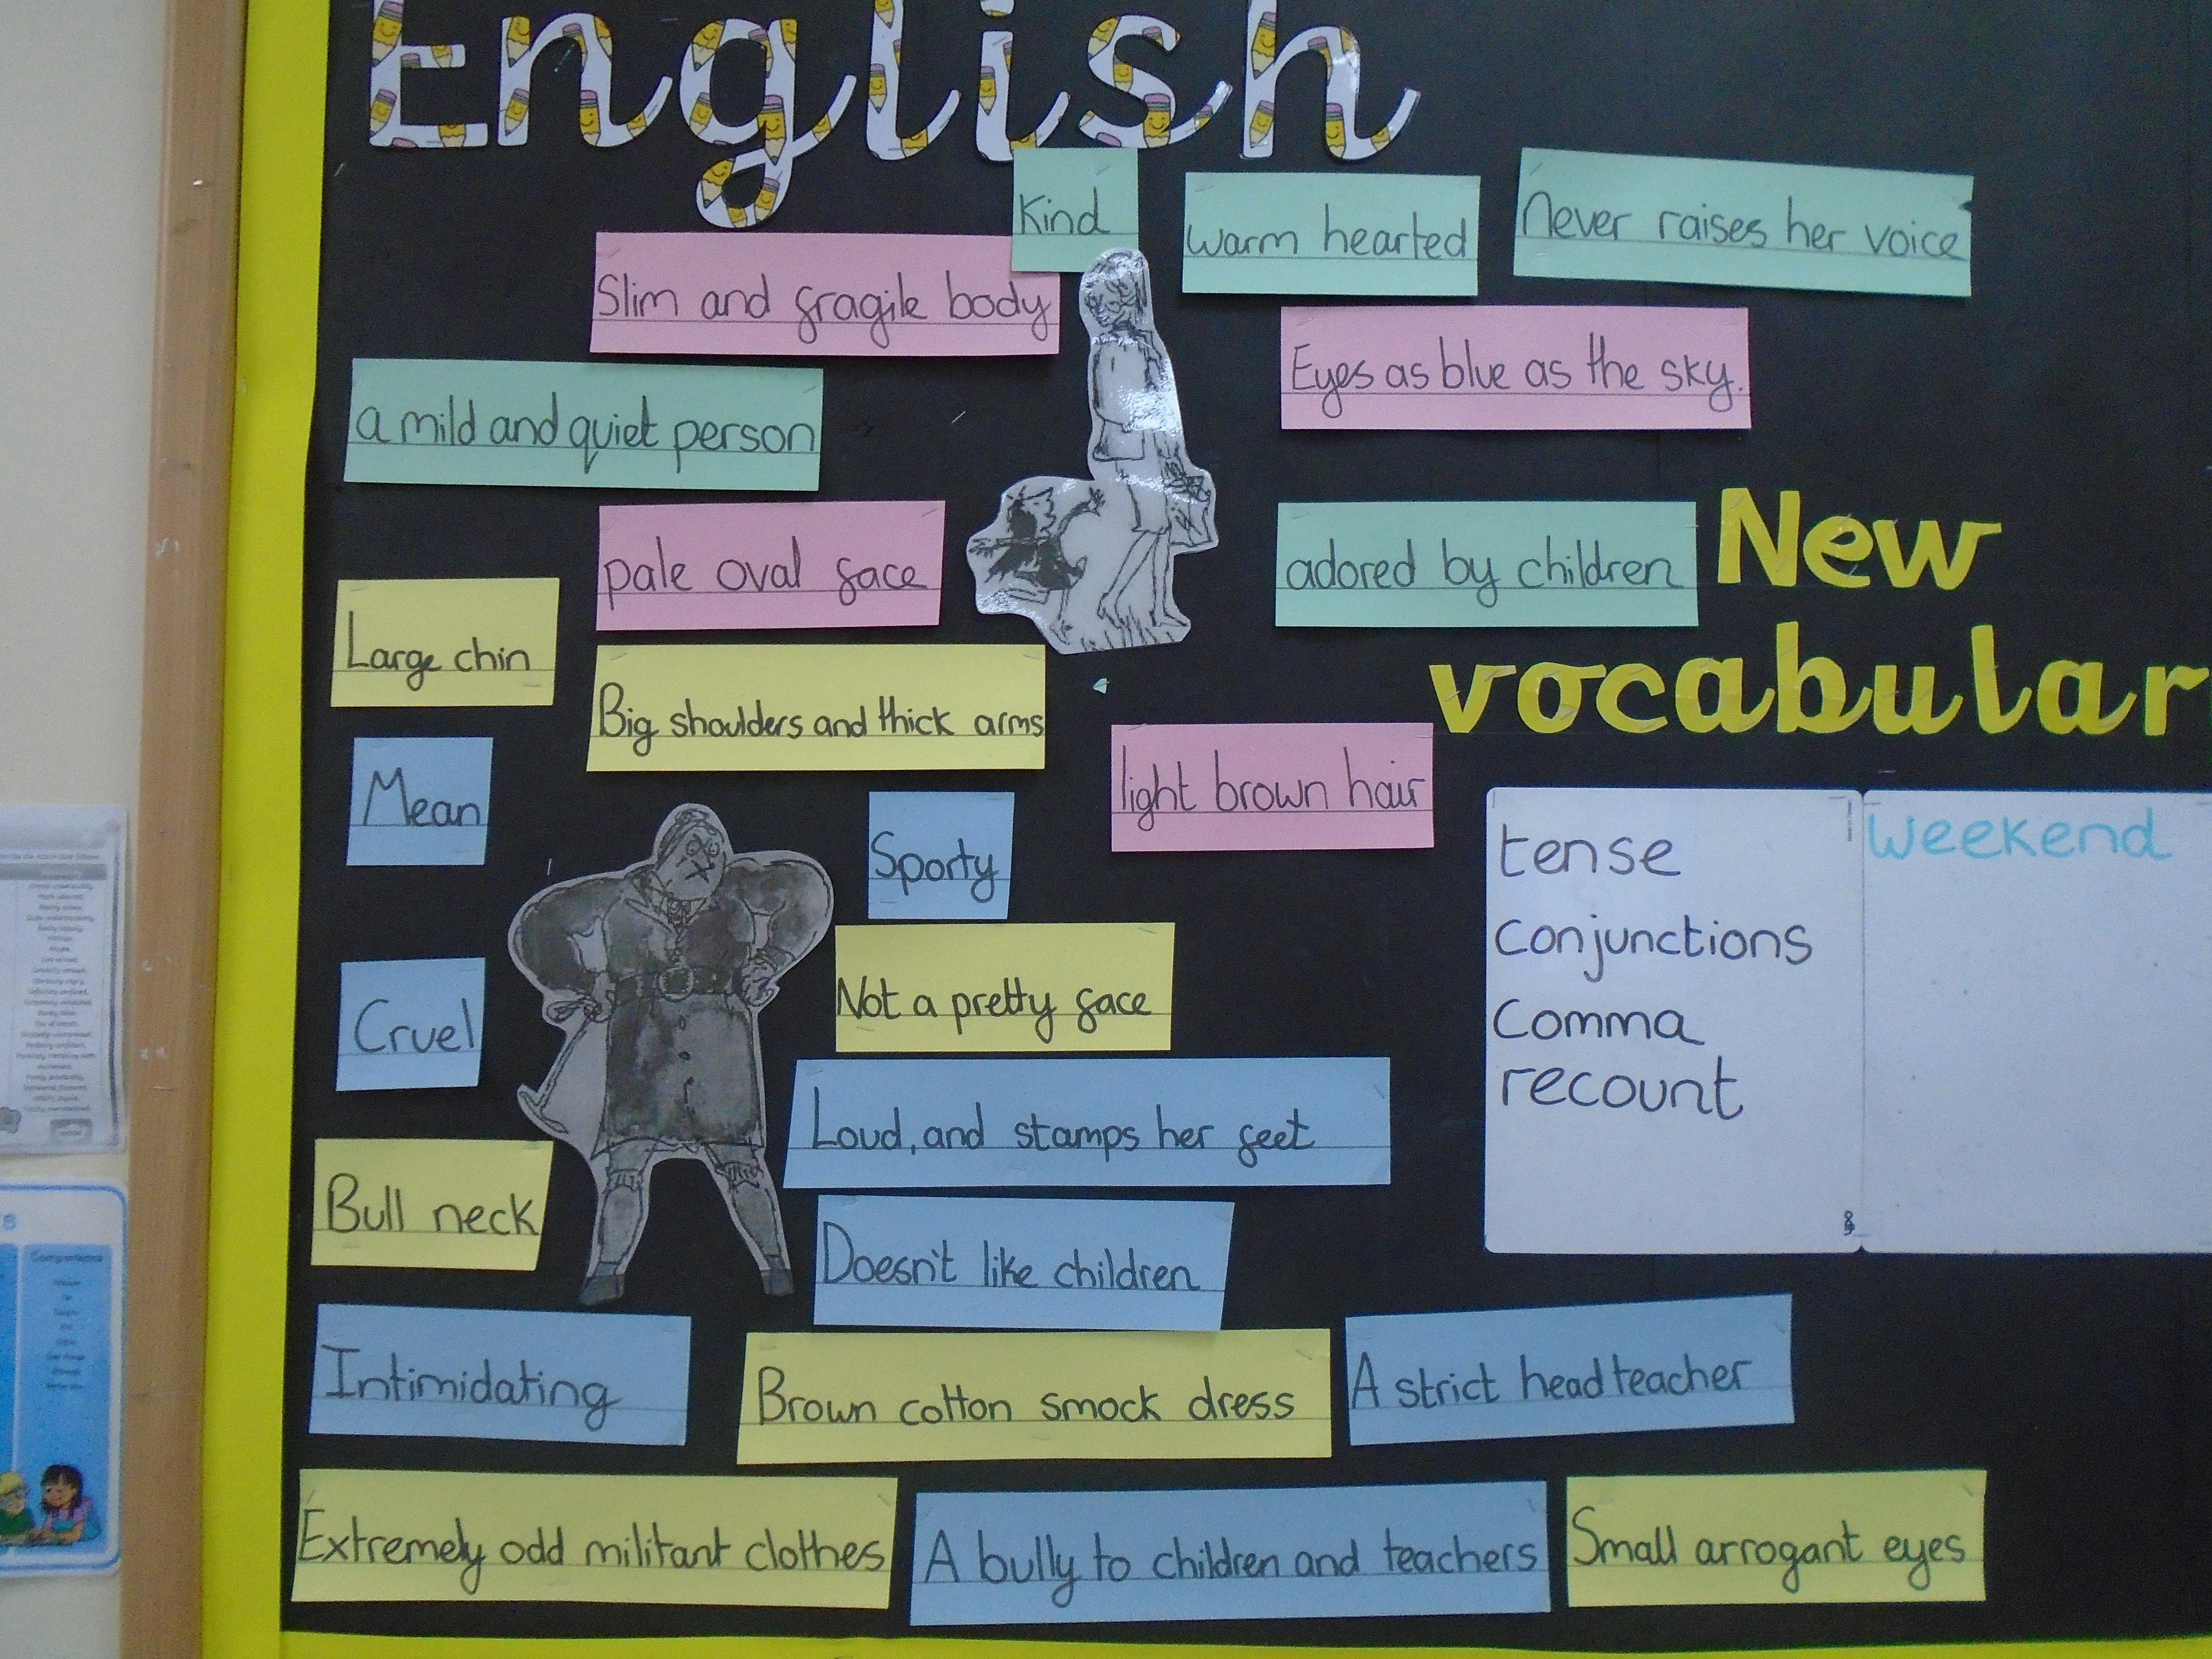 English
Kind
warm hearted
Never raises her voice
Slim and fragile body
Eyes as blue as the sky.
a mild and quiet person
pale oval face
adored by children
New
vocabular
Large chin
Big shoulders and thick arms
light brown hair
Mean
Sporty
Cruel
Not a pretty face
Loud, and stamps her feet
Bull neck
Doesn't like children
Intimidating
Brown cotton smock dress
A strict head teacher
Extremely odd militant clothes
A bully to children and teachers
Small arrogant eyes
tense
conjunctions
comma
recount
Weekend